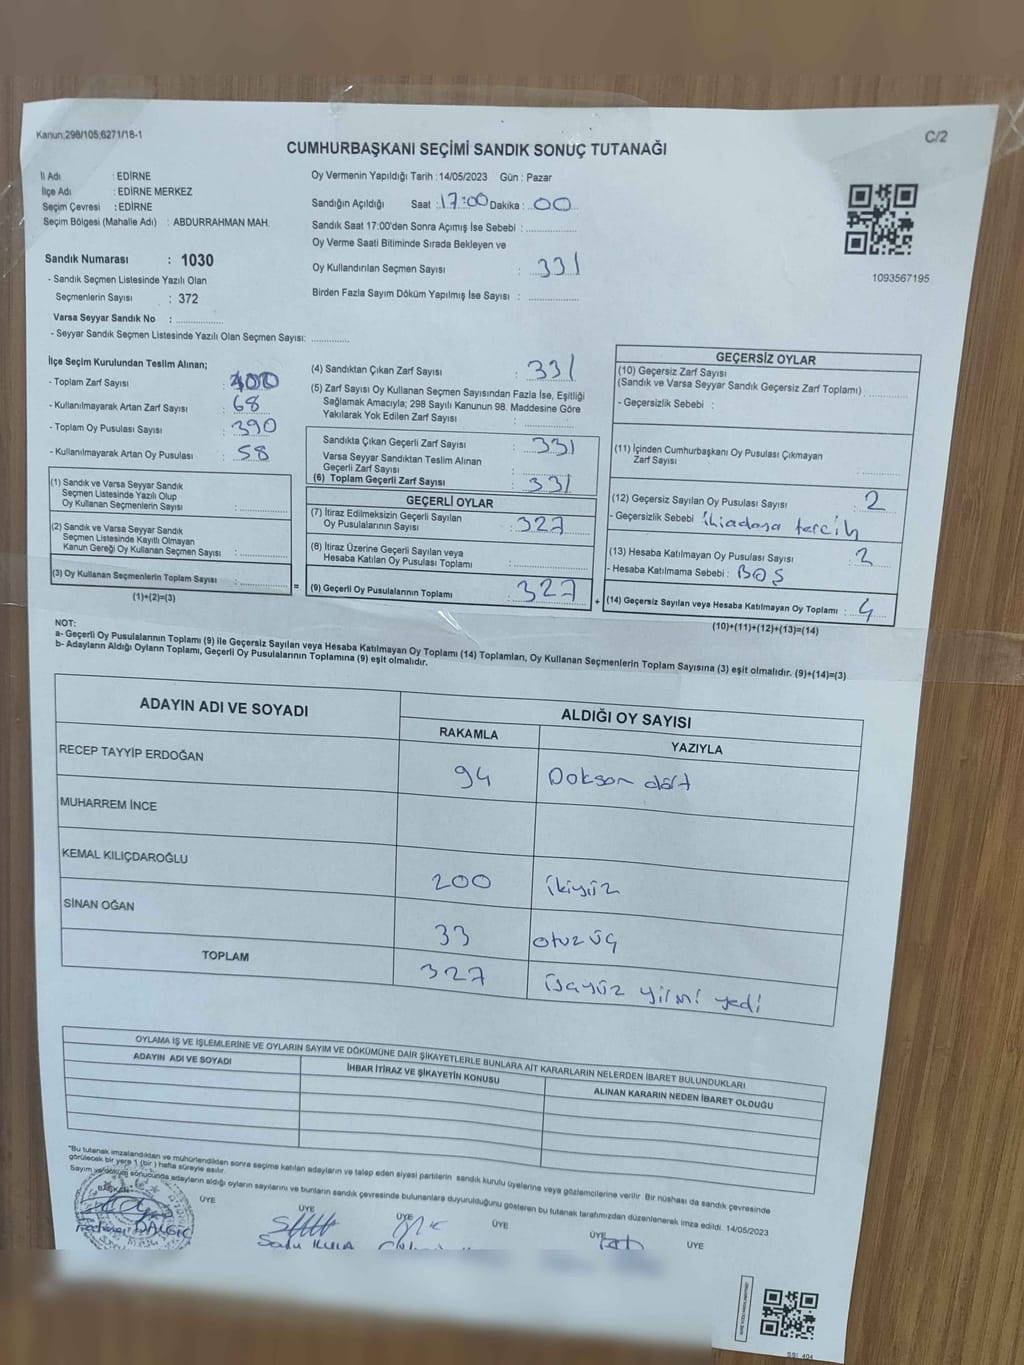 Kanun;298/105;6271/18-1
C/2
CUMHURBAŞKANI SEÇİMİ SANDIK SONUÇ TUTANAĞI
İl Adı : EDİRNE
İlçe Adı : EDİRNE MERKEZ
Seçim Çevresi : EDİRNE
Seçim Bölgesi (Mahalle Adı) : ABDURRAHMAN MAH.
Sandık Numarası : 1030
- Sandık Seçmen Listesinde Yazılı Olan
Seçmenlerin Sayısı : 372
Varsa Seyyar Sandık No : ..............
- Seyyar Sandık Seçmen Listesinde Yazılı Olan Seçmen Sayısı: ............
Oy Vermenin Yapıldığı Tarih : 14/05/2023 Gün : Pazar
Sandığın Açıldığı Saat : 17:00 Dakika : 00
Sandık Saat 17:00'den Sonra Açımış İse Sebebi : ..............
Oy Verme Saati Bitiminde Sırada Bekleyen ve
Oy Kullandırılan Seçmen Sayısı : 331
Birden Fazla Sayım Döküm Yapılmış İse Sayısı : ..............
1093567195
İlçe Seçim Kurulundan Teslim Alınan;
- Toplam Zarf Sayısı : 400
- Kullanılmayarak Artan Zarf Sayısı : 68
- Toplam Oy Pusulası Sayısı : 390
- Kullanılmayarak Artan Oy Pusulası : 58
(1) Sandık ve Varsa Seyyar Sandık
Seçmen Listesinde Yazılı Olup
Oy Kullanan Seçmenlerin Sayısı : ............
(2) Sandık ve Varsa Seyyar Sandık
Seçmen Listesinde Kayıtlı Olmayan
Kanun Gereği Oy Kullanan Seçmen Sayısı : ............
(3) Oy Kullanan Seçmenlerin Toplam Sayısı : ............
(1)+(2)=(3)
=
(4) Sandıktan Çıkan Zarf Sayısı : 331
(5) Zarf Sayısı Oy Kullanan Seçmen Sayısından Fazla İse, Eşitliği
Sağlamak Amacıyla; 298 Sayılı Kanunun 98. Maddesine Göre
Yakılarak Yok Edilen Zarf Sayısı : ............
Sandıkta Çıkan Geçerli Zarf Sayısı : 331
Varsa Seyyar Sandıktan Teslim Alınan
Geçerli Zarf Sayısı : ............
(6) Toplam Geçerli Zarf Sayısı : 331
GEÇERLİ OYLAR
(7) İtiraz Edilmeksizin Geçerli Sayılan
Oy Pusulalarının Sayısı : 327
(8) İtiraz Üzerine Geçerli Sayılan veya
Hesaba Katılan Oy Pusulası Toplamı : ............
(9) Geçerli Oy Pusulalarının Toplamı : 327
+
GEÇERSİZ OYLAR
(10) Geçersiz Zarf Sayısı
(Sandık ve Varsa Seyyar Sandık Geçersiz Zarf Toplamı) : ............
- Geçersizlik Sebebi :
(11) İçinden Cumhurbaşkanı Oy Pusulası Çıkmayan
Zarf Sayısı : ............
(12) Geçersiz Sayılan Oy Pusulası Sayısı : 2
- Geçersizlik Sebebi : tercih
(13) Hesaba Katılmayan Oy Pusulası Sayısı : 2
- Hesaba Katılmama Sebebi : BOŞ
(14) Geçersiz Sayılan veya Hesaba Katılmayan Oy Toplamı : 4
(10)+(11)+(12)+(13)=(14)
NOT:
a- Geçerli Oy Pusulalarının Toplamı (9) ile Geçersiz Sayılan veya Hesaba Katılmayan Oy Toplamı (14) Toplamları, Oy Kullanan Seçmenlerin Toplam Sayısına (3) eşit olmalıdır. (9)+(14)=(3)
b- Adayların Aldığı Oyların Toplamı, Geçerli Oy Pusulalarının Toplamına (9) eşit olmalıdır.
ADAYIN ADI VE SOYADI ALDIĞI OY SAYISI
RAKAMLA YAZIYLA
RECEP TAYYİP ERDOĞAN 94 Doksan dört
MUHARREM İNCE
KEMAL KILIÇDAROĞLU 200 ikiyüz
SİNAN OĞAN 33 otuzüç
TOPLAM 327 üçyüz yirmi yedi
OYLAMA İŞ VE İŞLEMLERİNE VE OYLARIN SAYIM VE DÖKÜMÜNE DAİR ŞİKAYETLERLE BUNLARA AİT KARARLARIN NELERDEN İBARET BULUNDUKLARI
ADAYIN ADI VE SOYADI İHBAR İTİRAZ VE ŞİKAYETİN KONUSU ALINAN KARARIN NEDEN İBARET OLDUĞU
"Bu tutanak imzalandıktan ve mühürlendikten sonra seçime katılan adayların ve talep eden siyasi partilerin sandık kurulu üyelerine veya gözlemcilerine verilir Bir nüshası da sandık çevresinde
görülecek bir yere 1 (bir) hafta süreyle asılır.
Sayım ve döküm sonucunda adayların aldığı oyların sayılarını ve bunların sandık çevresinde bulunanlara duyurulduğunu gösteren bu tutanak tarafımızdan düzenlenerek imza edildi. 14/05/2023
BAŞKAN ÜYE ÜYE ÜYE ÜYE ÜYE ÜYE
DALGIÇ